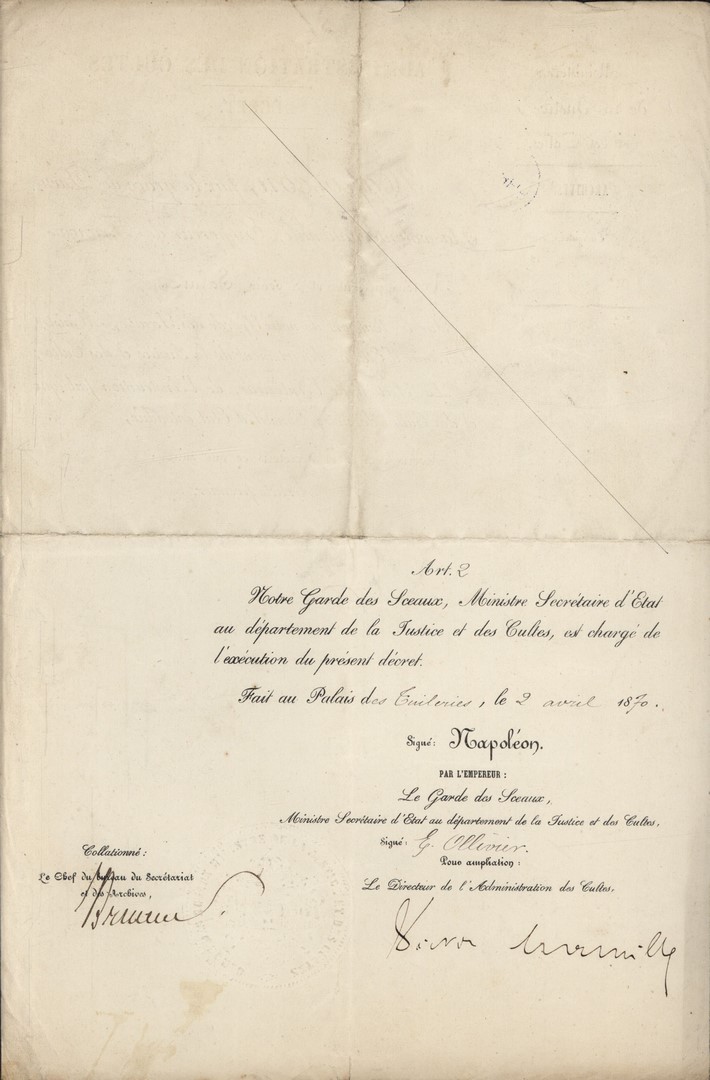 Art. 2
Notre Garde des Sceaux, Ministre Secrétaire d'Etat
au département de la Justice et des Cultes, est chargé de
l'exécution du présent décret.
Fait au Palais des Tuileries, le 2 avril 1870.
Signé: Napoléon.
PAR L'EMPEREUR:
Le Garde des Sceaux,
Ministre Secrétaire d'Etat au département de la Justice et des Cultes,
Signé: E. Ollivier.
Pour ampliation:
Le Directeur de l'Administration des Cultes,
Collationné:
Le Chef du Bureau du Secrétariat
et des Archives,